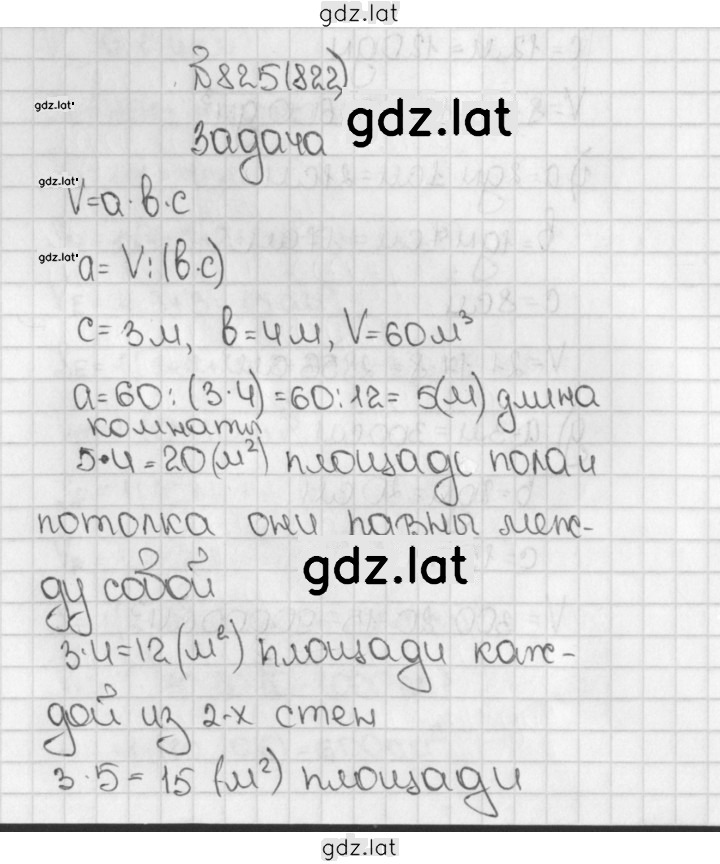 gdz.lat
№825(822)
gdz.lat
gdz.lat
задача
gdz.lat
V=a·b·c
gdz.lat
a= V:(b·c)
c=3м, b=4м, V=60м³
a=60:(3·4)=60:12= 5(м) длина
комнаты
5·4=20(м²) площадь пола и
потолка они равны меж-
gdz.lat
ду собой
3·4=12(м²) площади каж-
дой из 2-х стен
3·5=15(м²) площади
gdz.lat